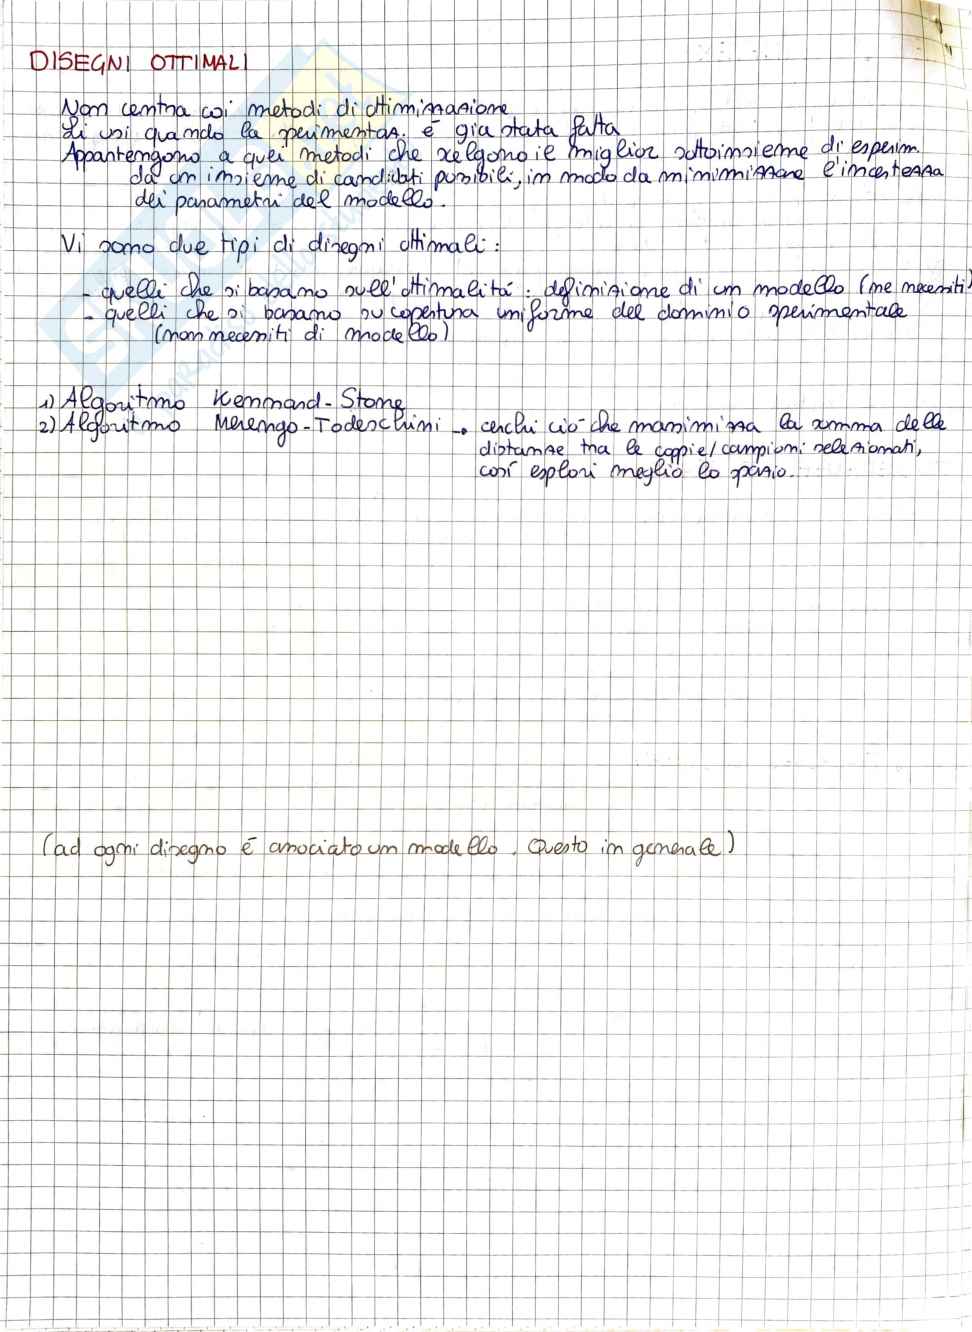 DISEGNI OTTIMALI
Non centra coi metodi di ottimizzazione
Li usi quando la sperimentaz. è già stata fatta
Appartengono a quei metodi che scelgono il miglior sottoinsieme di esperim.
da un insieme di candidati possibili, in modo da minimizzare l'incertezza
dei parametri del modello.
Vi sono due tipi di disegni ottimali:
- quelli che si basano sull'ottimalità: definizione di un modello (ne necessiti)
- quelli che si basano su copertura uniforme del dominio sperimentale
(non necessiti di modello)
1) Algoritmo Kennard-Stone
2) Algoritmo Marengo-Todeschini → cerchi ciò che massimizza la somma delle
distanze tra le coppie/campioni selezionati,
così esplori meglio lo spazio.
(ad ogni disegno è associato un modello. Questo in generale)